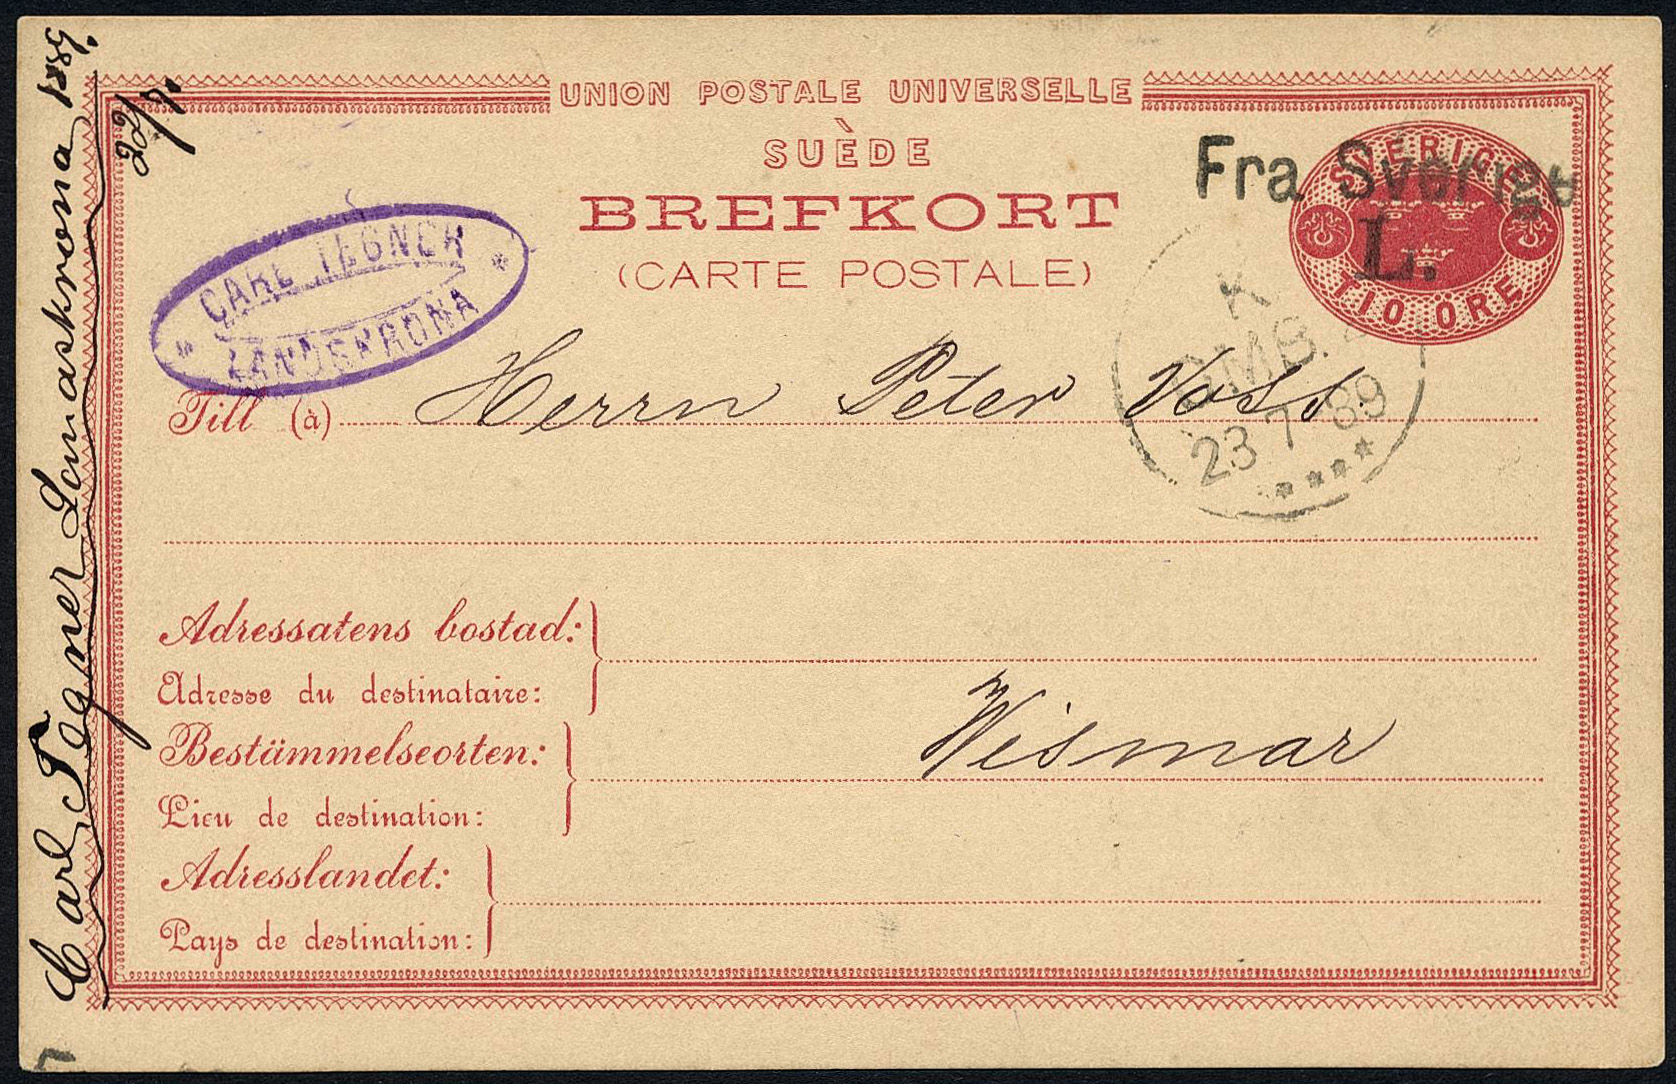 UNION POSTALE UNIVERSELLE
SUÈDE
BREFKORT
(CARTE POSTALE)
SVERIGE
TIO ÖRE
Fra Sverige
L.
K
OMB. 2
23 7 89
CARL TEGNER
LANDSKRONA
Till (à) Herrn Peter Voss
Adressatens bostad:
Adresse du destinataire:
Wismar
Bestämmelseorten:
Lieu de destination:
Adresslandet:
Pays de destination:
Carl Tegner Landskrona 1889.